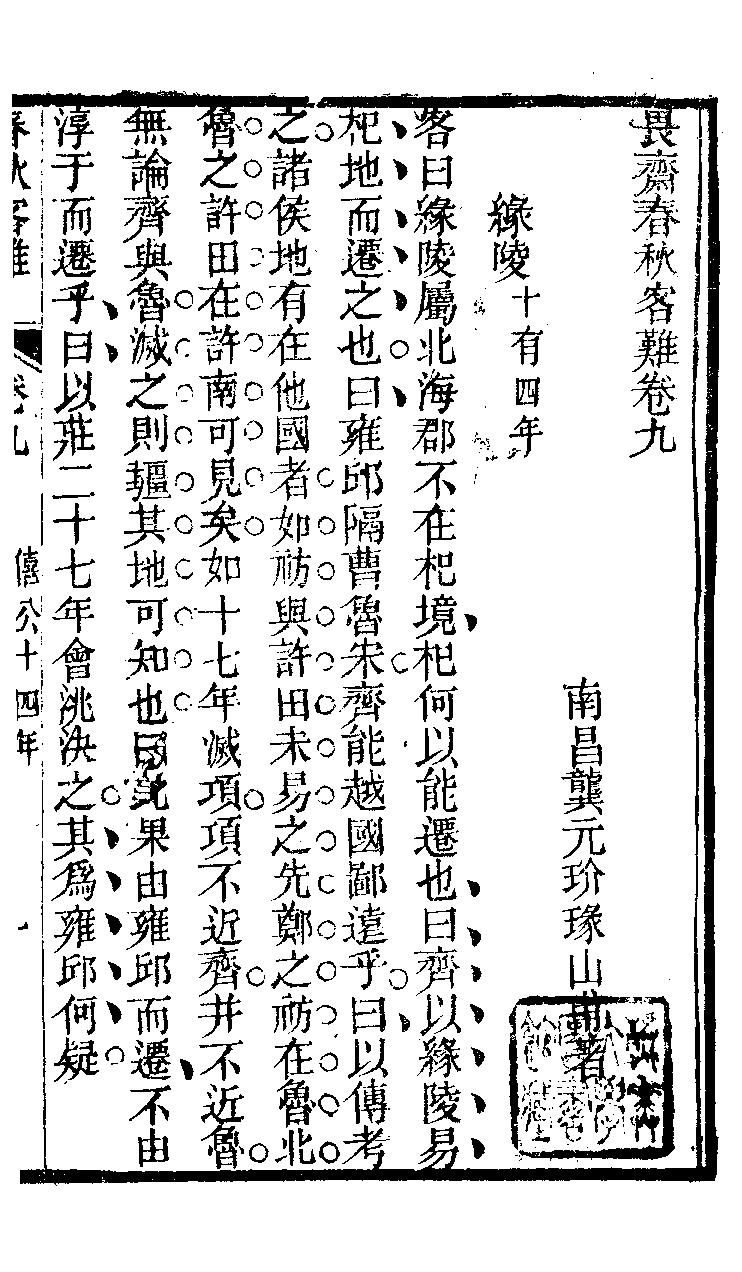 畏齋春秋客難卷九
南昌龔元玠瑑山甫著
緣陵十有四年
客曰緣陵屬北海郡不在杞境杞何以能遷也曰齊以緣陵易
杞地而遷之也曰雍邱隔曹魯朱齊能越國鄙遠乎曰以傳考
之諸侯地有在他國者如祊與許田未易之先鄭之祊在魯北
魯之許田在許南可見矣如十七年滅項項不近齊并不近魯
無論齊與魯滅之則疆其地可知也曰此果由雍邱而遷不由
淳于而遷乎曰以莊二十七年會洮決之其爲雍邱何疑
春秋客難
卷九
僖公十四年
一